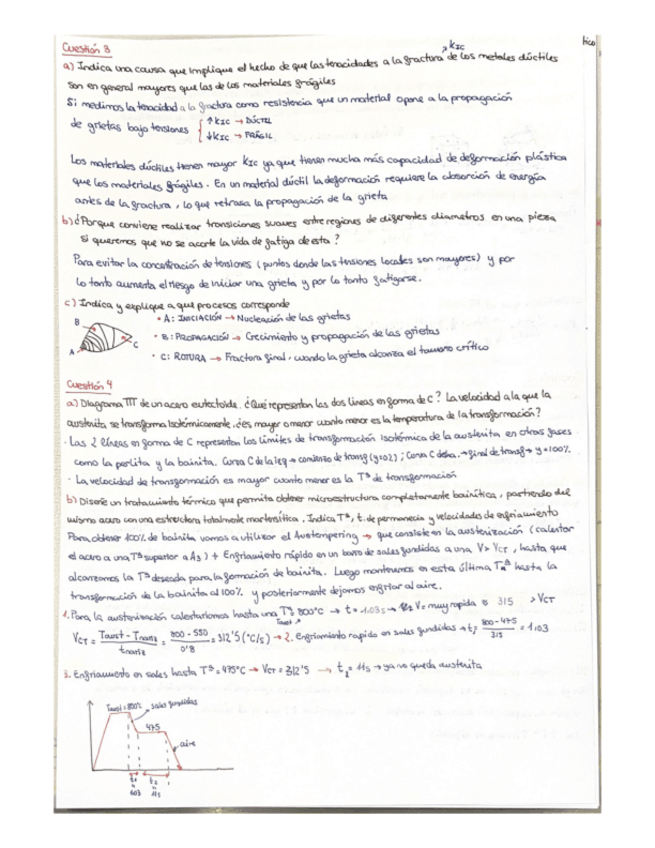 Cuestión 3
tico
→ KIC
a) Indica una causa que implique el hecho de que las tenacidades a la fractura de los metales dúctiles
son en general mayores que las de los materiales frágiles
Si medimos la tenacidad a la fractura como resistencia que un material opone a la propagación
de grietas bajo tensiones { ↑KIC → DÚCTIL
↓KIC → FRÁGIL
Los materiales dúctiles tienen mayor KIC ya que tienen mucha más capacidad de deformación plástica
que los materiales frágiles. En un material dúctil la deformación requiere la absorción de energía
antes de la fractura, lo que retrasa la propagación de la grieta
b) ¿Porque conviene realizar transiciones suaves entre regiones de diferentes diametros en una pieza
si queremos que no se acorte la vida de fatiga de esta?
Para evitar la concentración de tensiones (puntos donde las tensiones locales son mayores) y por
lo tanto aumenta el riesgo de iniciar una grieta y por lo tanto fatigarse.
c) Indica y explique a que procesos corresponde
B
A
C
• A: INICIACIÓN → Nucleación de las grietas
• B: PROPAGACIÓN → Crecimiento y propagación de las grietas
• C: ROTURA → Fractura final, cuando la grieta alcanza el tamaño crítico
Cuestión 4
a) Diagrama TTT de un acero eutectoide. ¿Qué representan las dos líneas en forma de C? La velocidad a la que la
austenita se transforma isotérmicamente, ¿es mayor o menor cuanto menor es la temperatura de la transformación?
· Las 2 líneas en forma de C representan los límites de transformación isotérmica de la austenita en otras fases
como la perlita y la bainita. Curva C de la izq → comienzo de transf (y=0%); Curva C dcha. → final de transf → y=100%.
· La velocidad de transformación es mayor cuanto menor es la Tª de transformación
b) Diseñe un tratamiento térmico que permita obtener microestructura completamente bainítica, partiendo del
mismo acero con una estructura totalmente martensítica. Indica Tª, t. de permanecia y velocidades de enfriamiento
Para obtener 100% de bainita vamos a utilizar el Austempering → que consiste en la austenización (calentar
el acero a una Tª superior a A3) + Enfriamiento rápido en un baño de sales fundidas a una V > VCT, hasta que
alcanzamos la Tª deseada para la formación de bainita. Luego mantenemos en esta última Tª hasta la
transformación de la bainita al 100% y posteriormente dejamos enfriar al aire.
1. Para la austenización calentaríamos hasta una Tª 800ºC → t = 1.03s → V= muy rapida 315 > VCT
VCT = Taust - Tnariz / tnariz = 800 - 550 / 0'8 = 312'5 (ºC/s) → 2. Enfriamiento rapido en sales fundidas → t1 = 800-475 / 315 = 1.03
3. Enfriamiento en sales hasta Tª = 475ºC → VCT = 312'5 → t2 = 11s → ya no queda austenita
Taust = 800ºC
sales fundidas
475
aire
t1
t2
1.03
11s